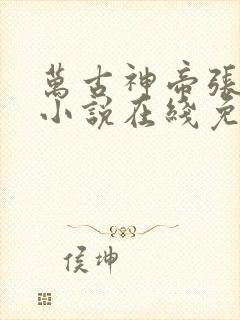 萬古神帝張
小說在綫免
侯坤